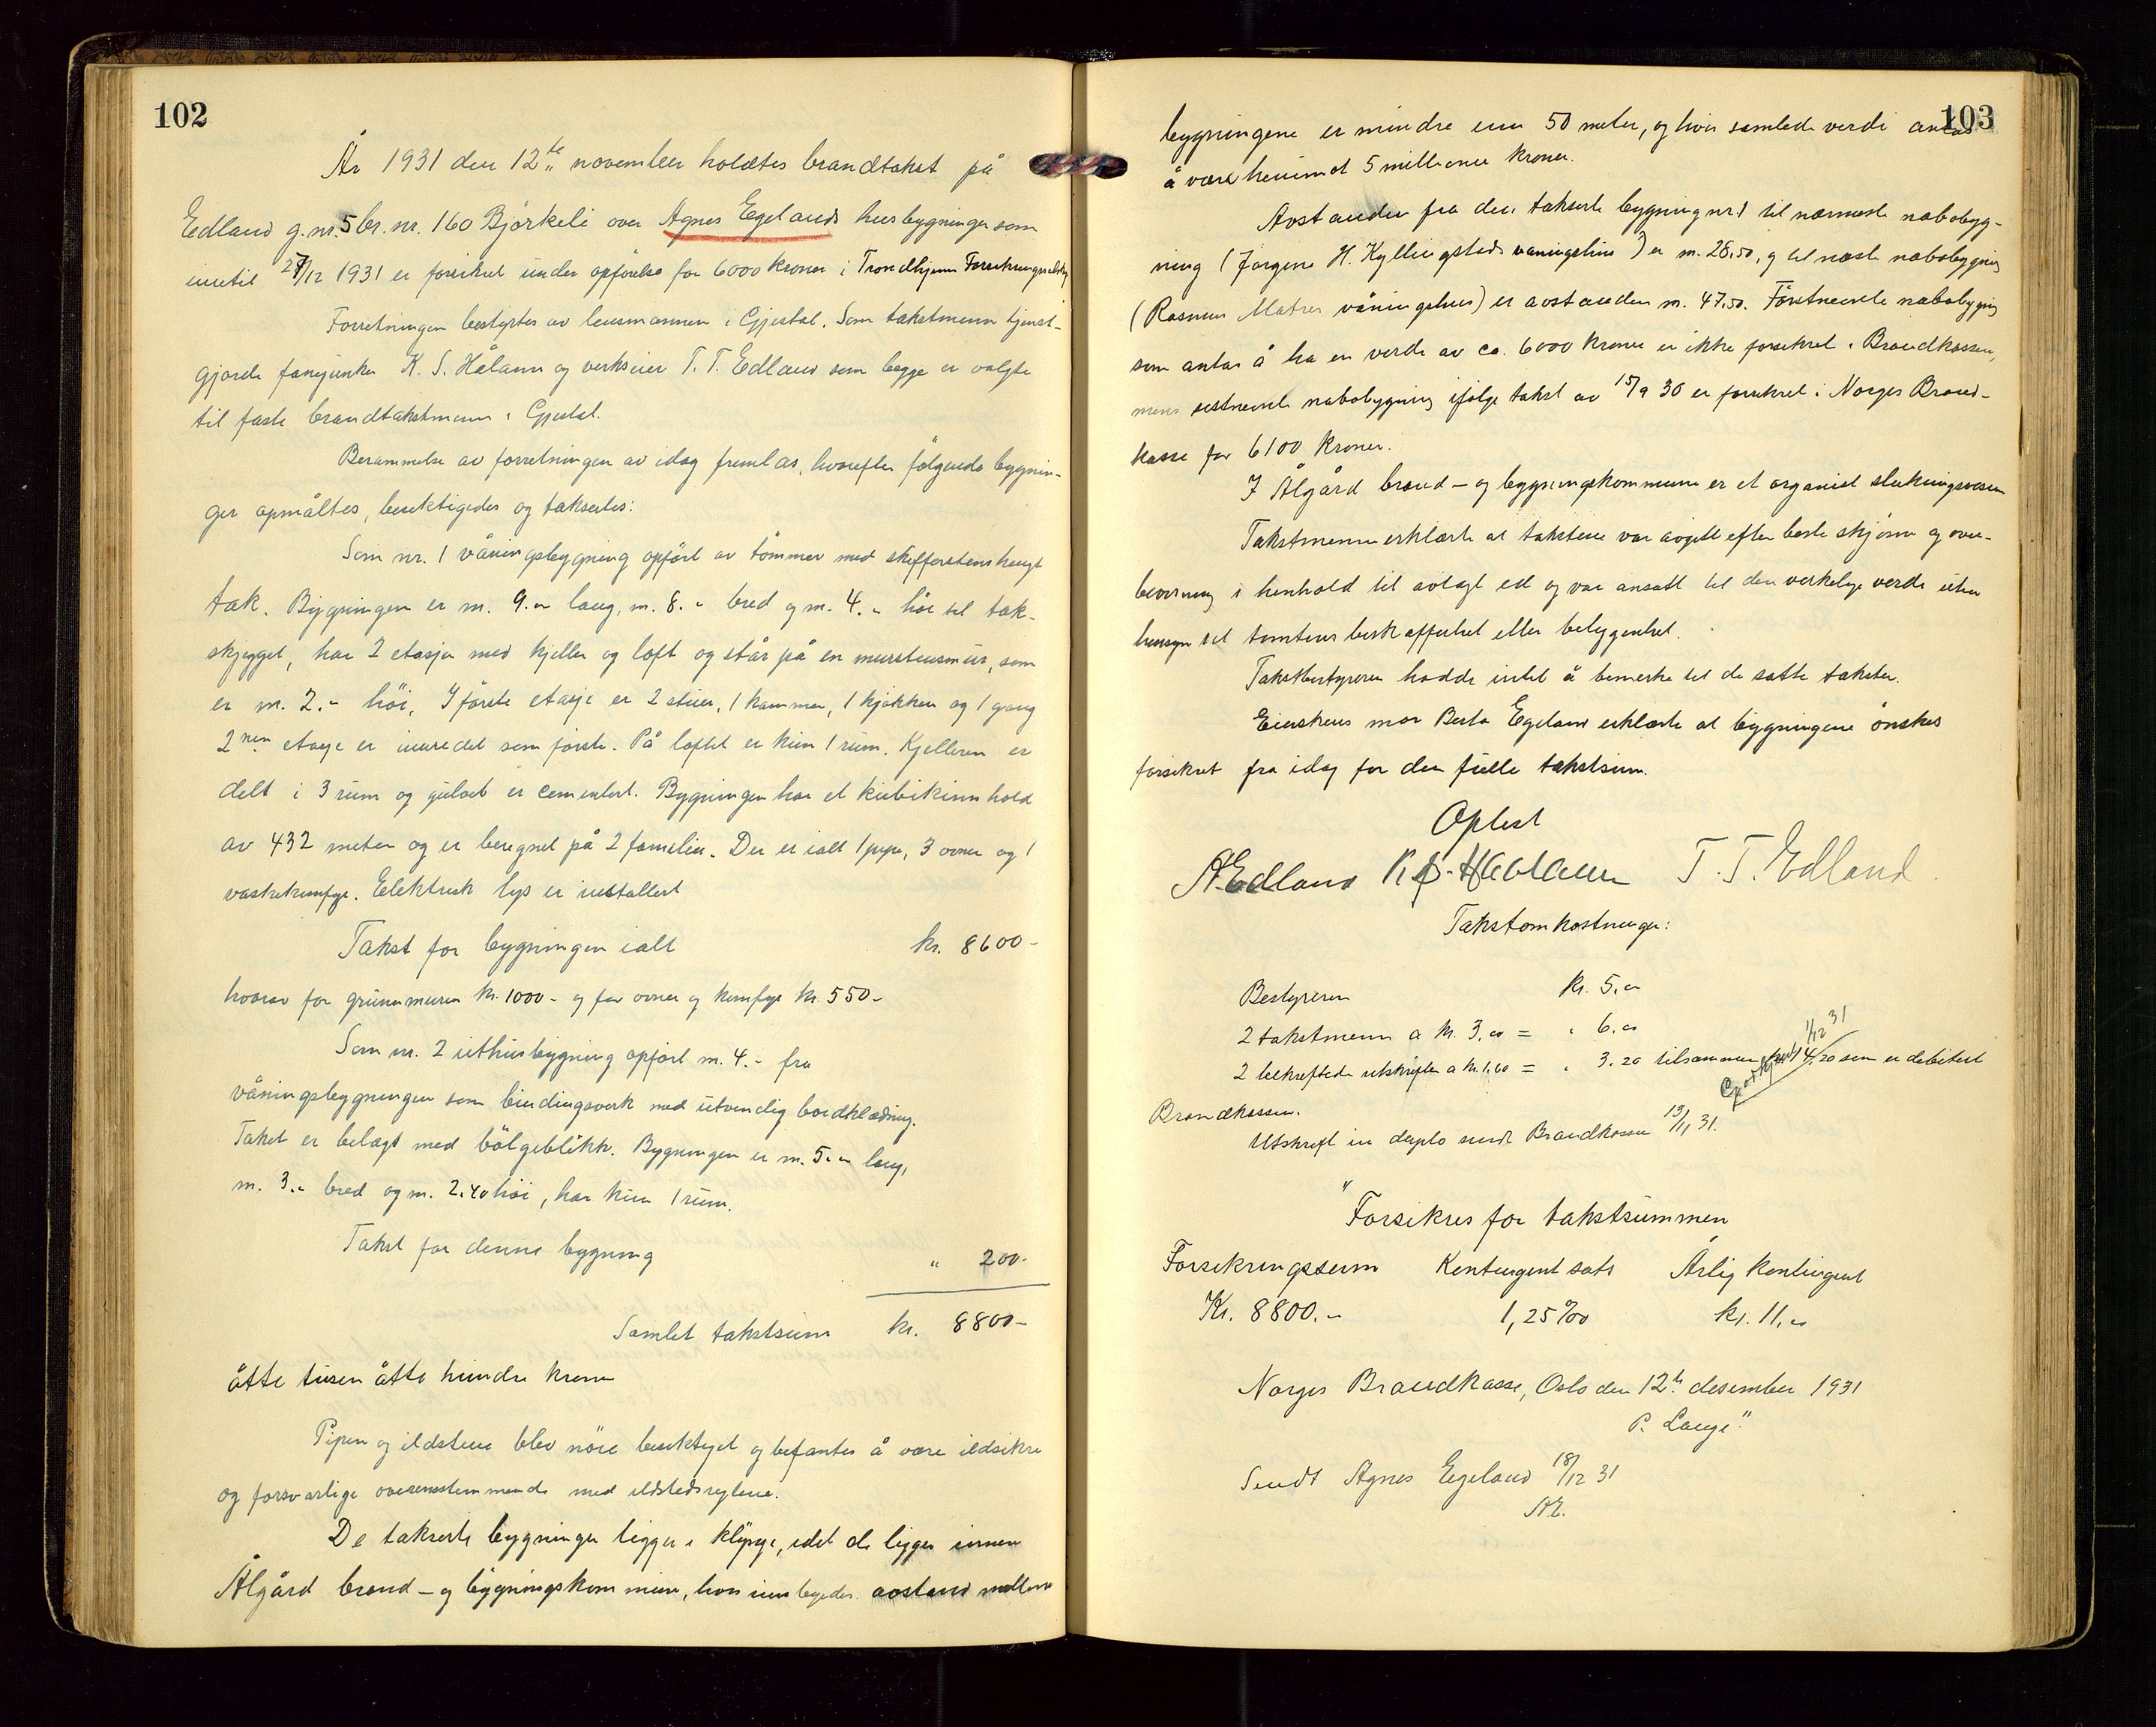 102
År 1931 den 12te november holdtes brandtakst på
Edland g.nr. 5 br. nr. 160 Björkeli over Agnes Egelands husbygninger som
inntil 27/12 1931 er forsikret under opförelse for 6000 kroner i Trondhjems Forsikringsselskap
Forretningen bestyrtes av lensmannen i Gjestal. Som takstmenn tjenst-
gjorde fanejunker K. S. Håland og verkseier T. T. Edland som begge er valgte
til faste brandtakstmenn i Gjestal.
Berammelse av forretningen av idag fremlas, hvorefter fölgende bygnin-
ger opmåltes, besiktigedes og taksertes:
Som nr. 1 våningsbygning opfört av tömmer med skifferstenshengt
tak. Bygningen er m. 9.- lang, m. 8.- bred og m. 4.- höi til tak-
skjegget, har 2 etasjer med kjeller og loft og står på en murstensmur, som
er m. 2.- höi. I förste etasje er 2 stuer, 1 kammer, 1 kjökken og 1 gang
2nen etasje er innredet som förste. På loftet er kun 1 rum. Kjelleren er
delt i 3 rum og gulvet er cementert. Bygningen har et kubikinnhold
av 432 meter og er beregnet på 2 familier. Der er ialt 1 pipe, 3 ovner og 1
vaskekomfyr. Elektrisk lys er installert
Takst for bygningen ialt kr. 8600-
hvorav for grunnmuren kr. 1000- og for ovner og komfyr kr. 550-
Som nr. 2 uthusbygning opfört m. 4.- fra
våningsbygningen som bindingsverk med utvendig bordklædning.
Taket er belagt med bölgeblikk. Bygningen er m. 5.- lang,
m. 3.- bred og m. 2.40 höi, har kun 1 rum.
Takst for denne bygning " 200-
Samlet takstsum kr. 8800-
åtte tusen åtte hundre kroner
Pipen og ildstene blev nöie besiktiget og befantes å være ildsikre
og forsvarlige overensstemmende med ildstedsreglene.
De takserte bygninger ligger i klynge, idet de ligger innen
Ålgård brand- og bygningskommune, hvis innbyrdes avstand mellem
103
bygningene er mindre enn 50 meter, og hvis samlede verdi antas
å være henimot 5 millioner kroner.
Avstanden fra den takserte bygning nr. 1 til nærmeste nabobyg-
ning (Jörgine H. Kyllingstads våningshus) er m. 28,50, og til næste nabobygning
(Rasmus Matres våningshus) er avstanden m. 47,50. Förstnevnte nabobygning
som antas å ha en verdi av ca. 6000 kroner er ikke forsikret i Brandkassen,
mens sistnevnte nabobygning ifölge takst av 15/9 30 er forsikret i Norges Brand-
kasse for 6100 kroner.
I Ålgård brand- og bygningskommune er et organisert slukningsvesen
Takstmennene erklærte at takstene var avgitt efter beste skjönn og over-
bevisning i henhold til avlagt ed og var ansatt til den virkelige verdi uten
hensyn til tomtens beskaffenhet eller beliggenhet.
Takstbestyreren hadde intet å bemerke til de satte takster.
Eierskens mor Berta Egeland erklærte at bygningene önskes
forsikret fra idag for den fulle takstsum.
Oplest
A Edland K S. Haaland T. T. Edland.
Takstomkostninger:
Bestyreren kr. 5.-
2 takstmenn a kr. 3,00 = " 6.00
2 bekreftede utskrifter a kr. 1,60 = " 3.20 tilsammen kr. 14,20 som er debitert
1/12 31
Brandkassen.
Utskrift in duplo sendt Brandkassen 13/11 31.
"Forsikres for takstsummen
Forsikringssum Kontingentsats Årlig kontingent
Kr. 8800.- 1,25 ‰ kr. 11,00
Norges Brandkasse, Oslo den 12te desember 1931
P. Lange."
Sendt Agnes Egeland 18/12 31
AE.